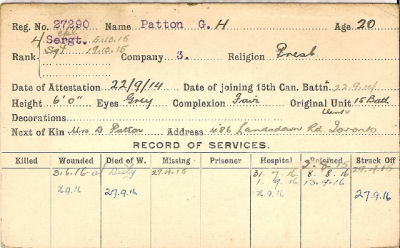 Reg. No. 27290 Name Patton G. H Age 20
Cpl. 5.10.15
Rank Sergt. 19.10.15 Company 3. Religion Presb
Date of Attestation 22/9/14 Date of joining 15th Can. Battn 22.9.14
Height 6'0" Eyes Grey Complexion Fair Original Unit 15 Batt
Decorations
Next of Kin Mrs D Patton Address 486 Lansdown Rd Toronto
RECORD OF SERVICES.
Killed Wounded Died of W. Missing Prisoner Hospital Rejoined Struck Off
3.6.16 at Duty 29.4.15 31.7.16 8.8.16 29.4.15
27.9.16 1.9.16 13.9.16 27.9.16